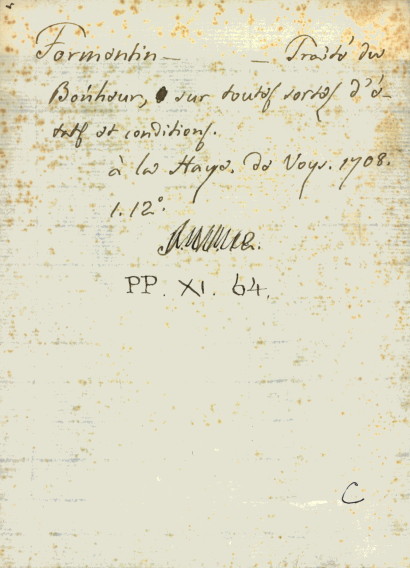 Formentin — — Traité du
Bonheur, sur toutes sortes d'é-
tats et conditions.
à la Haye. de Voys. 1708.
1. 12°.
PP. XI. 64.
C